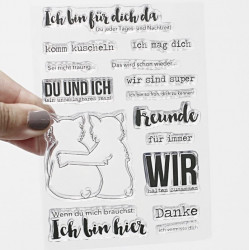 Ich bin für dich da
Zu jeder Tages- und Nachtzeit
komm kuscheln
Ich mag dich
Sei nicht traurig...
Das wird schon wieder...
DU UND ICH
ein unschlagbares Team!
wir sind super
Freunde
für immer
WIR
halten zusammen
Wenn du mich brauchst:
Ich bin hier
Danke